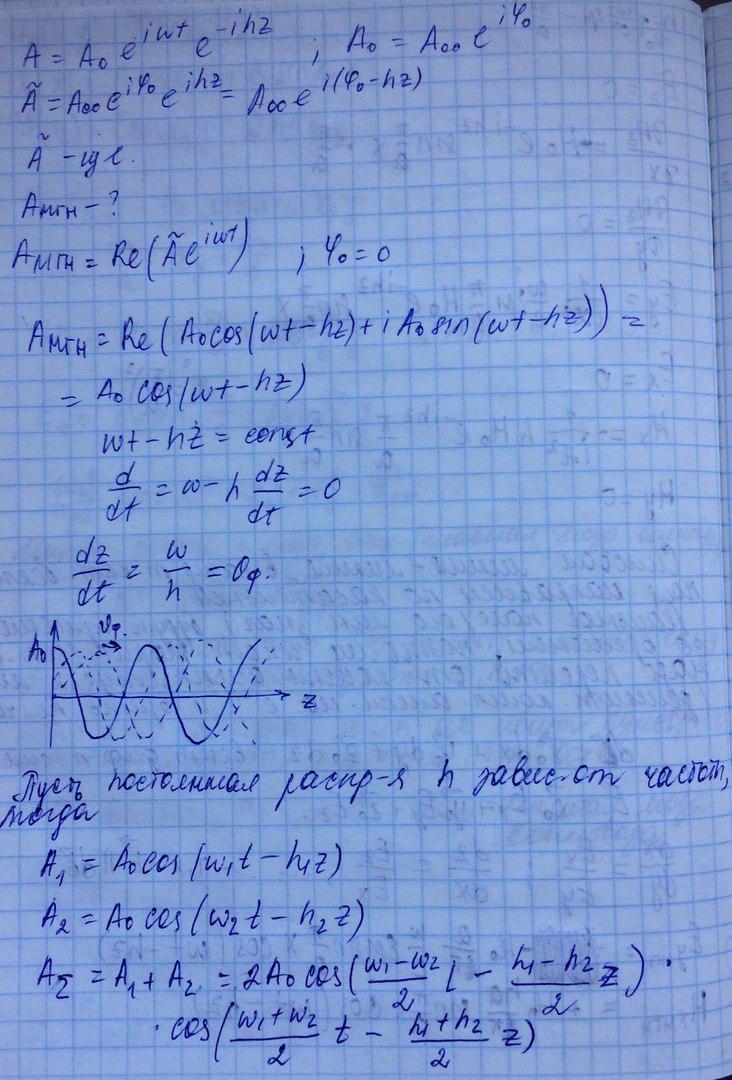 A = A₀ e^{iωt} e^{-ihz} ; A₀ = A₀₀ e^{iφ₀}
Ã = A₀₀ e^{iφ₀} e^{ihz} = A₀₀ e^{i(φ₀-hz)}
Ã -
Aмгн - ?
Aмгн = Re(Ã e^{iωt}) ; φ₀ = 0
Aмгн = Re(A₀ cos(ωt-hz) + i A₀ sin(ωt-hz)) =
= A₀ cos(ωt-hz)
ωt - hz = const
d/dt = ω - h dz/dt = 0
dz/dt = ω/h = υф.
υф.
A₀
z
Пусть постоянная распр-я h завис. от частот,
тогда
A₁ = A₀ cos(ω₁t - h₁z)
A₂ = A₀ cos(ω₂t - h₂z)
A_Σ = A₁ + A₂ = 2A₀ cos((ω₁-ω₂)/2 t - (h₁-h₂)/2 z) ·
· cos((ω₁+ω₂)/2 t - (h₁+h₂)/2 z)